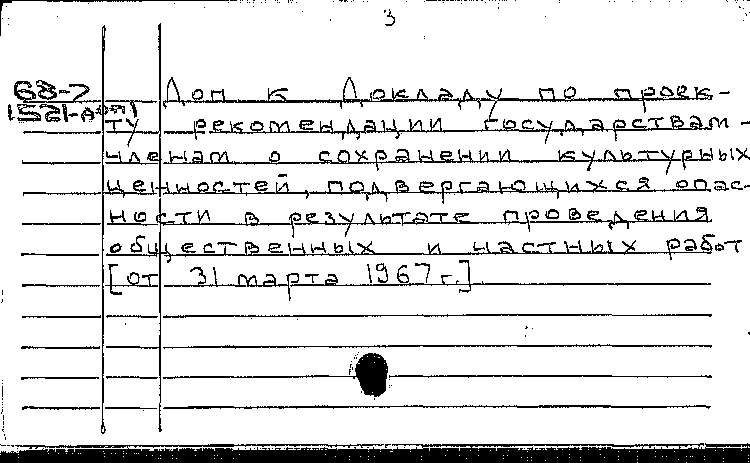 3
68-7
1521-доп
Доп к Докладу по проек-
ту рекомендации государствам-
членам о сохранении культурных
ценностей, подвергающихся опас-
ности в результате проведения
общественных и частных работ
[от 31 марта 1967 г.]